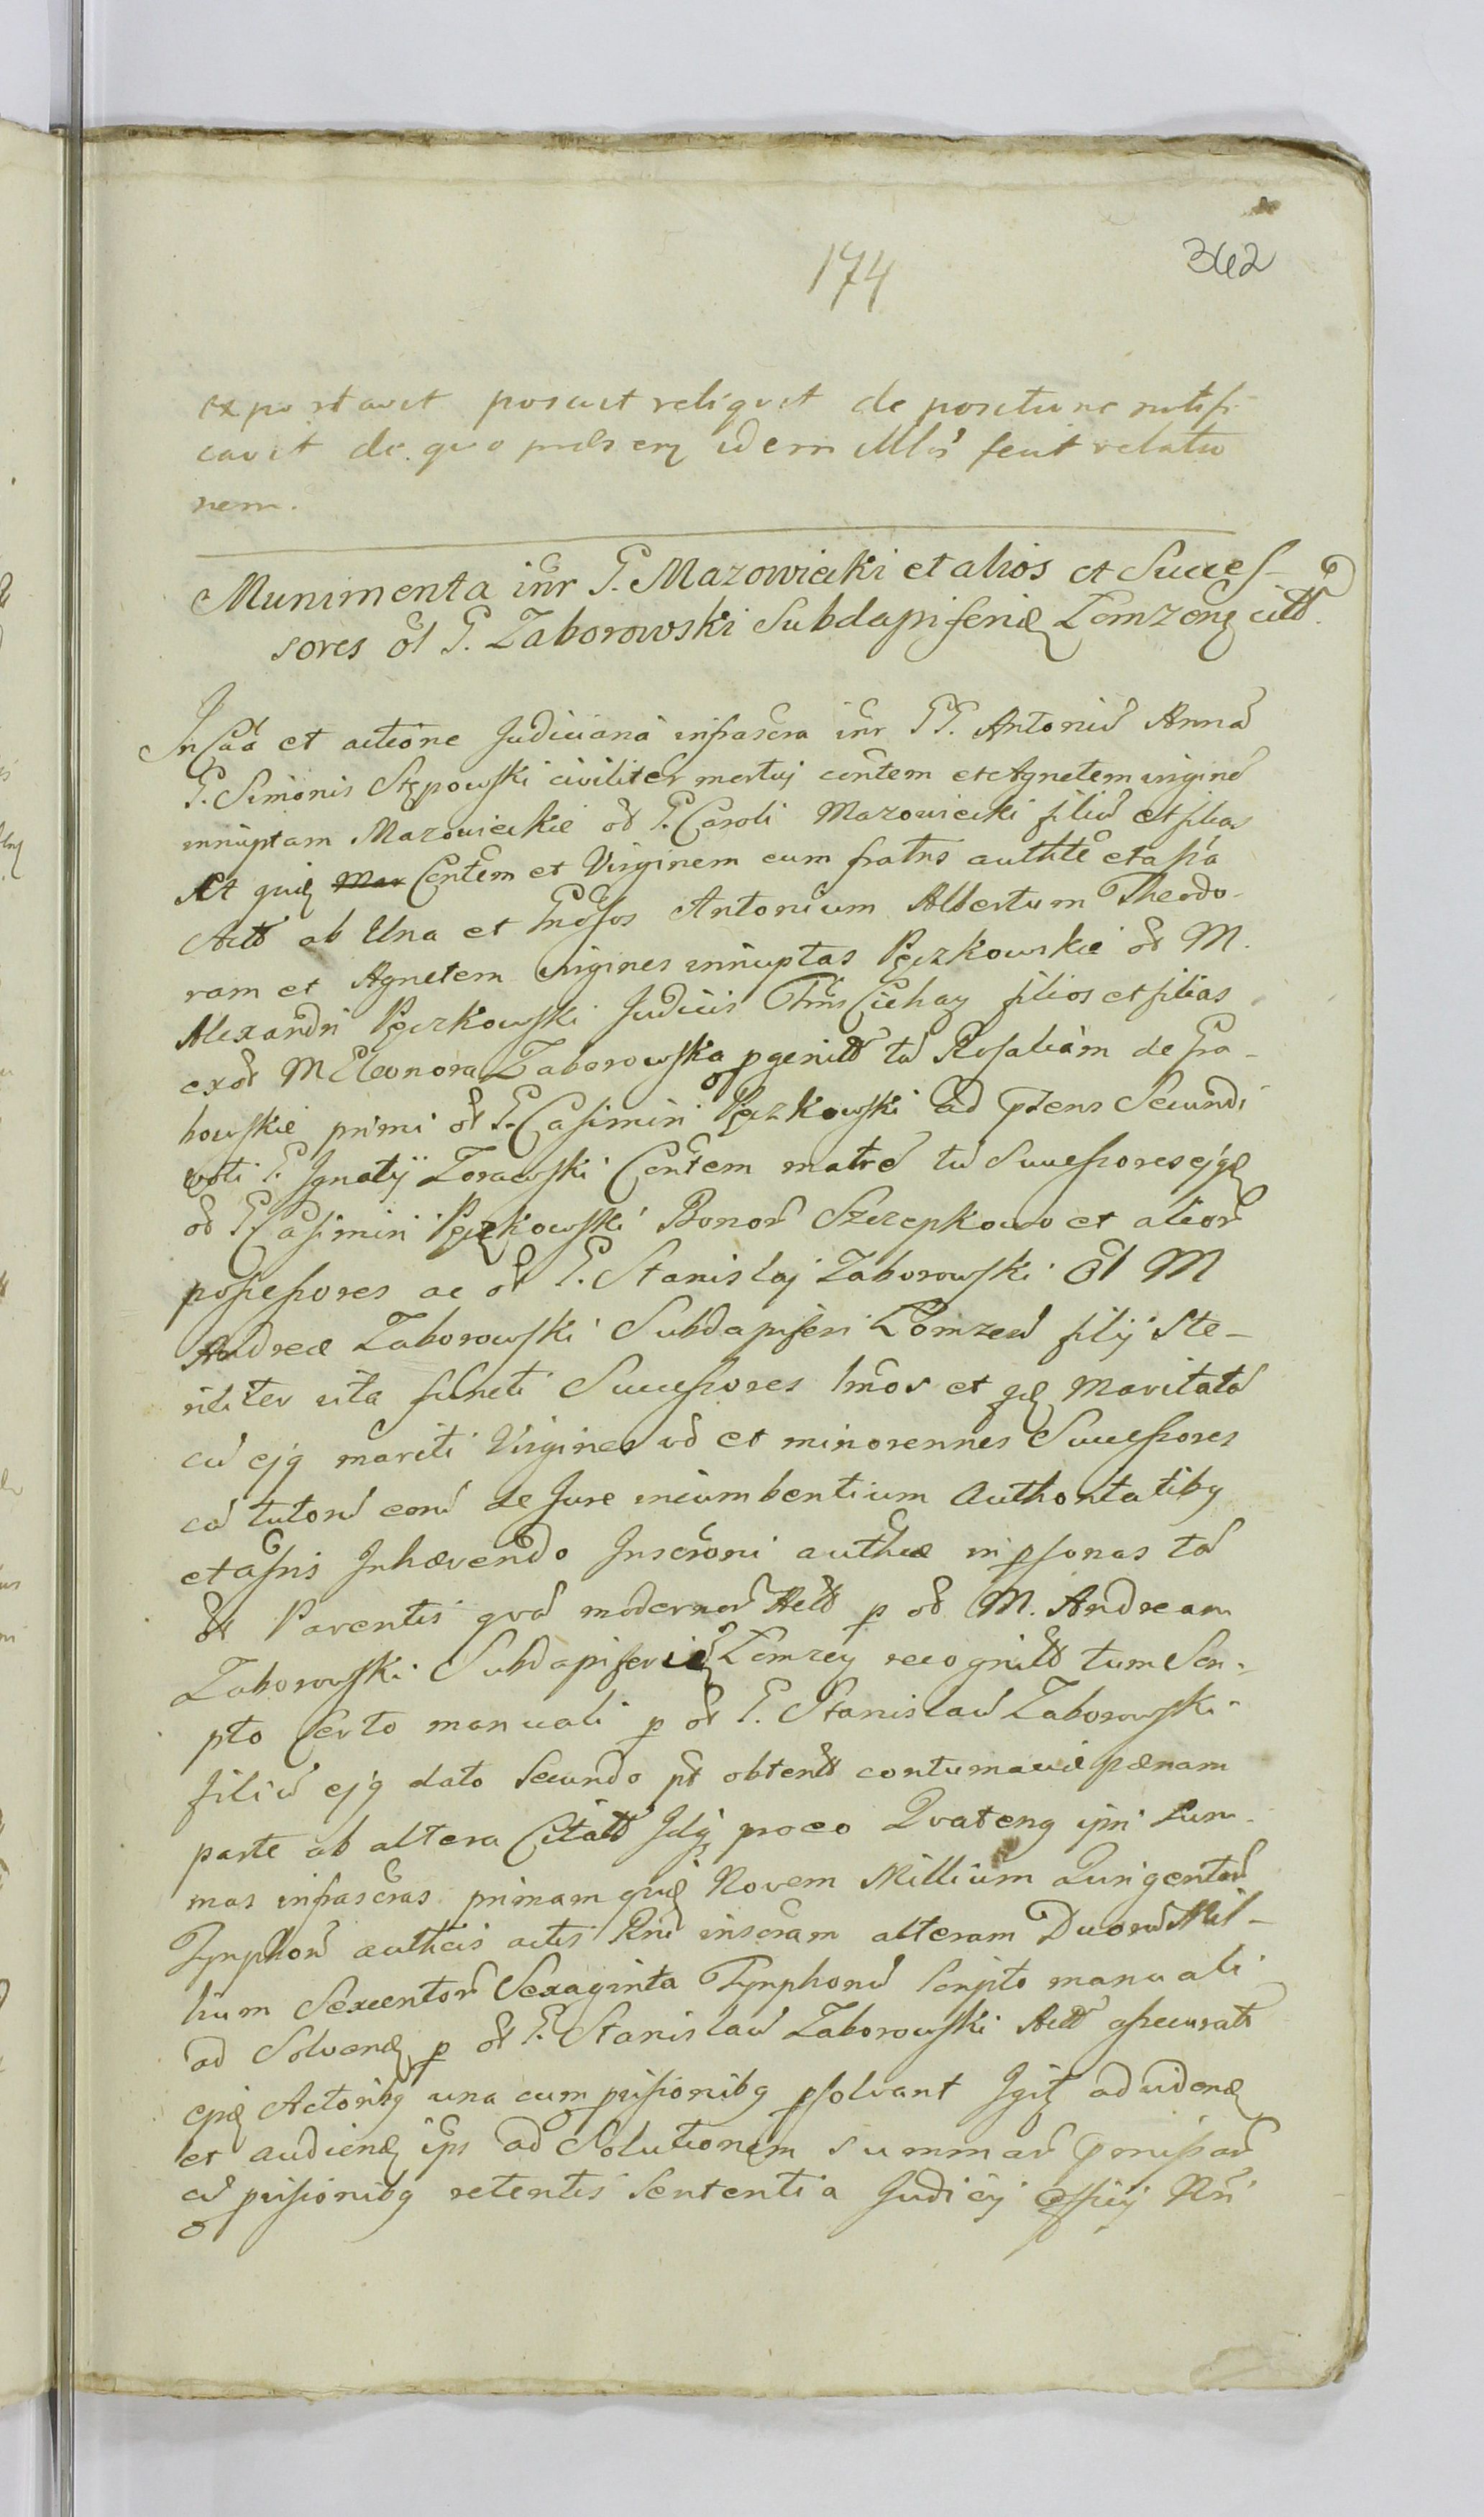 174
362
exportavit posuit reliquit de positione notifi
cavit de quo praesens idem Mlris fecit relatio
nem.
Munimenta inr G. Mazowiecki et alios et Succes-
sores ol G. Zaborowski Subdapiferidę Łomzeng citt
In Caã et actione Judiciaria infrascra inr GG. Antoniũ Annã
G. Simonis Stępowski civiliter mortuj contem et Agnetem virginẽ
innuptam Mazowieckie ol G. Caroli Mazowiecki filiũ et filias
At quię Mar Contem et Virginem cum fratris authte et assa
Actt ab Una et Gnosos Antonium Albertum Theodo-
ram et Agnetem virgines innuptas Pęczkowskie ol M.
Alexandri Pęczkowski Judicis Tris Ciehaz filios et filias
ex ol M Eleonora Zaborowska pgenitt tũ Rosaliam de Gra-
bowskie primi ol G. Casimiri Pęczkowski ad pñens Secundi
voti G. Ignatij Zorawski Contem matrẽ tũ Successores ejqę
ol G Casimiri Pęczkowski Bonor Szczepkowo et alior
possessores ac ol G. Stanislaj Zaborowski Ol M
Andreæ Zaborowski Subdapiferi Łomzen filij Ste-
riliter vita functi Successores hnos et qę Maritatã
cũ ejq mariti Virgines vő et minorennes Successores
cũ tutorũ eorũ de Jure incumbentium Authoritatibq
et assis Inhærendo Inscrõni authcæ in psonas tũ
ol Parentis qvã modernor Actt p ol M. Andream
Zaborowski Subdapiferię Łomzeŋ recognitt tum Scri-
pto Certo manuali p ol G. Stanislaũ Zaborowski
filiũ ejq dato Secundo pt obtentt contumaciæ pænam
parte ab altera Citatt Idq proco Qvateng ipsi Sum-
mas infrascras primam quię Novem Millium Quingentor
Tynphor authcis actis Rnd inscram alteram Duorũ Mil-
lium Sexcentor Sexaginta Tynphorũ Scripto manuali
ad Solvenę p ol G. Stanislaũ Zaborowski Actt assecuratt
epię Actoribq una cum pvisionibq psolvant Igiŧ ad videnę
et audienę ips ad Solutionem summar pmissar
cũ pvisionibq retentis Sententia Judicij Officij Nri